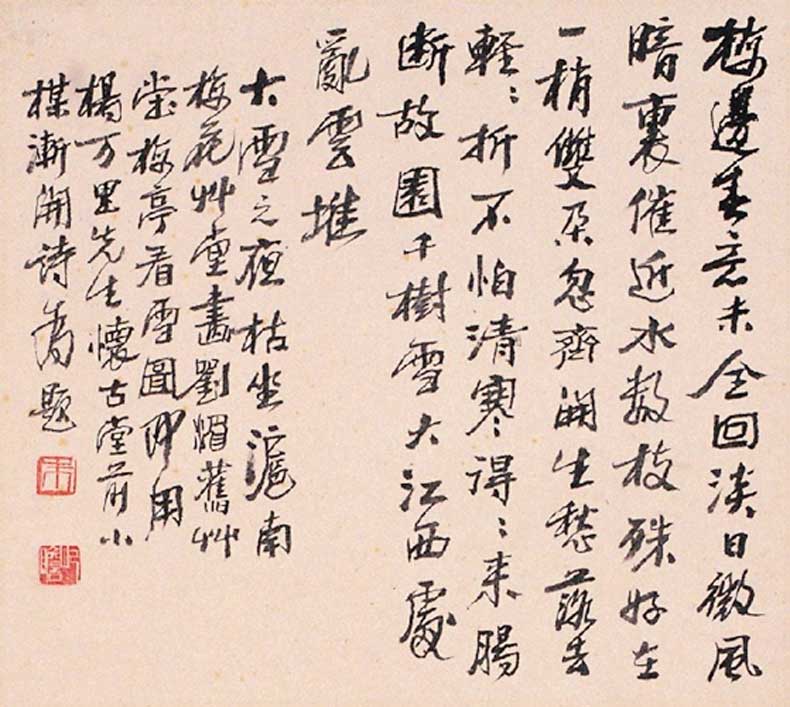 梅邊春意未全回淡日微風
暗裏催近水數枝殊好在
一梢雙朵忽齊開生愁落去
輕〻折不怕清寒得〻來腸
断故園千樹雪大江西處
亂雲堆
大雪之夜枯坐滬南
梅花艸堂畫劉媚舊艸
堂梅亭看雪圖即用
楊万里先生懷古堂前小
楳漸開詩為題
朱
屺瞻